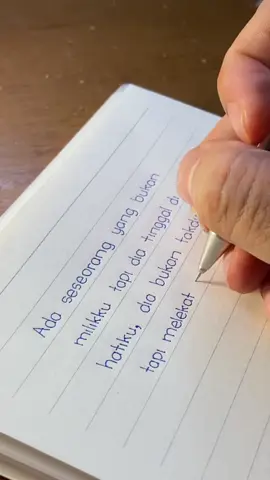 Ada seseorang yang bukan
milikku tapi dia tinggal di
hatiku, dia bukan
tapi melekat